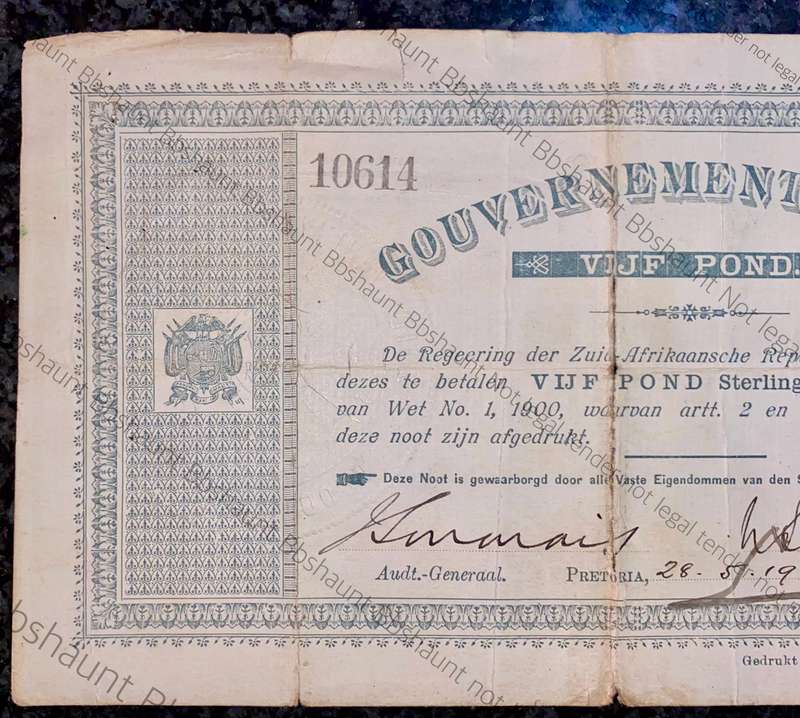 10614
GOUVERNEMENT
VIJF POND.
De Regeering der Zuid-Afrikaansche Rep
dezes te betalen VIJF POND Sterling
van Wet No. 1, 1900, waarvan artt. 2 en
deze noot zijn afgedrukt.
Deze Noot is gewaarborgd door alle Vaste Eigendommen van den S
Audt.-Generaal. PRETORIA, 28. 5. 19
Gedrukt
Bbshaunt Bbshaunt Bbshaunt Bbshaunt Not legal tender not legal tender
Bbshaunt Bbshaunt Bbshaunt Bbshaunt Not legal tender not legal tender
Bbshaunt Bbshaunt Bbshaunt Bbshaunt not
bshaunt Bbs